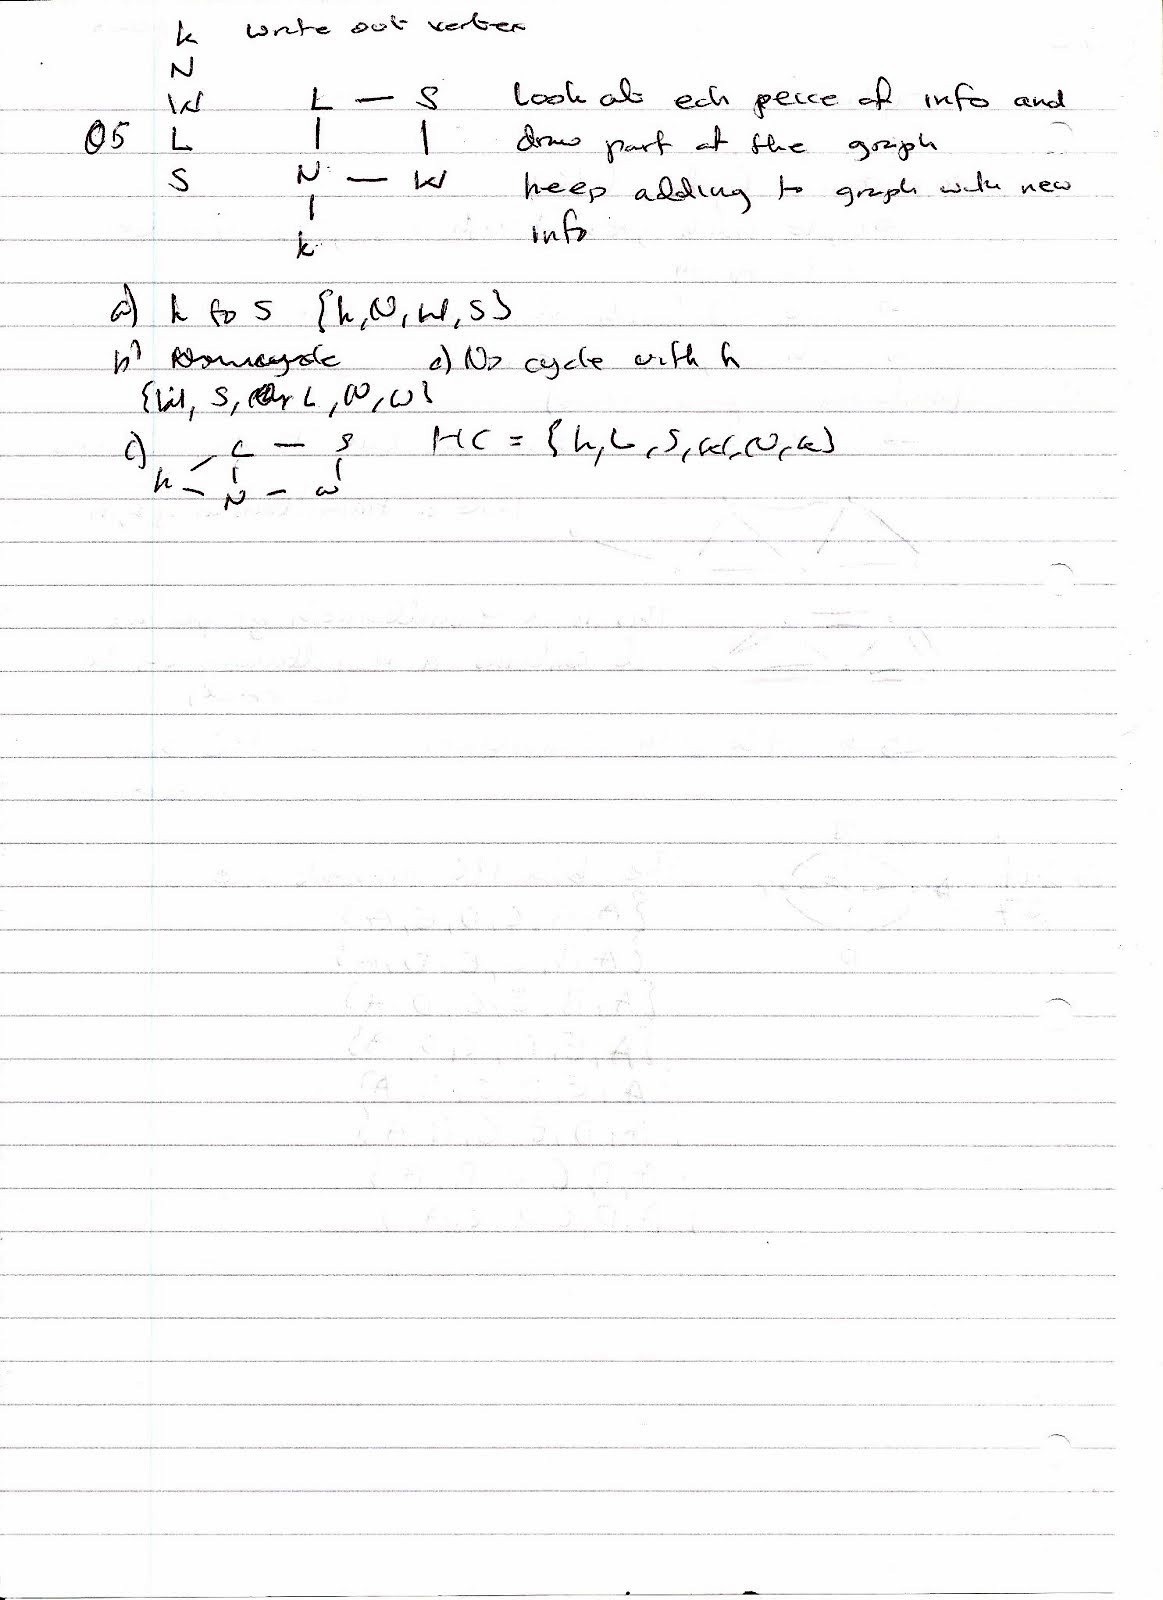 k write out vertex
N
W L — S look at ech peice of info and
Q5 L | | draw part of the graph
S N — W keep adding to graph with new
| info
k
a) k to S {k, N, W, S}
b) c) No cycle with k
{W, S, L, N, W}
c) L — S HC = {k, L, S, W, N, k}
k N — W